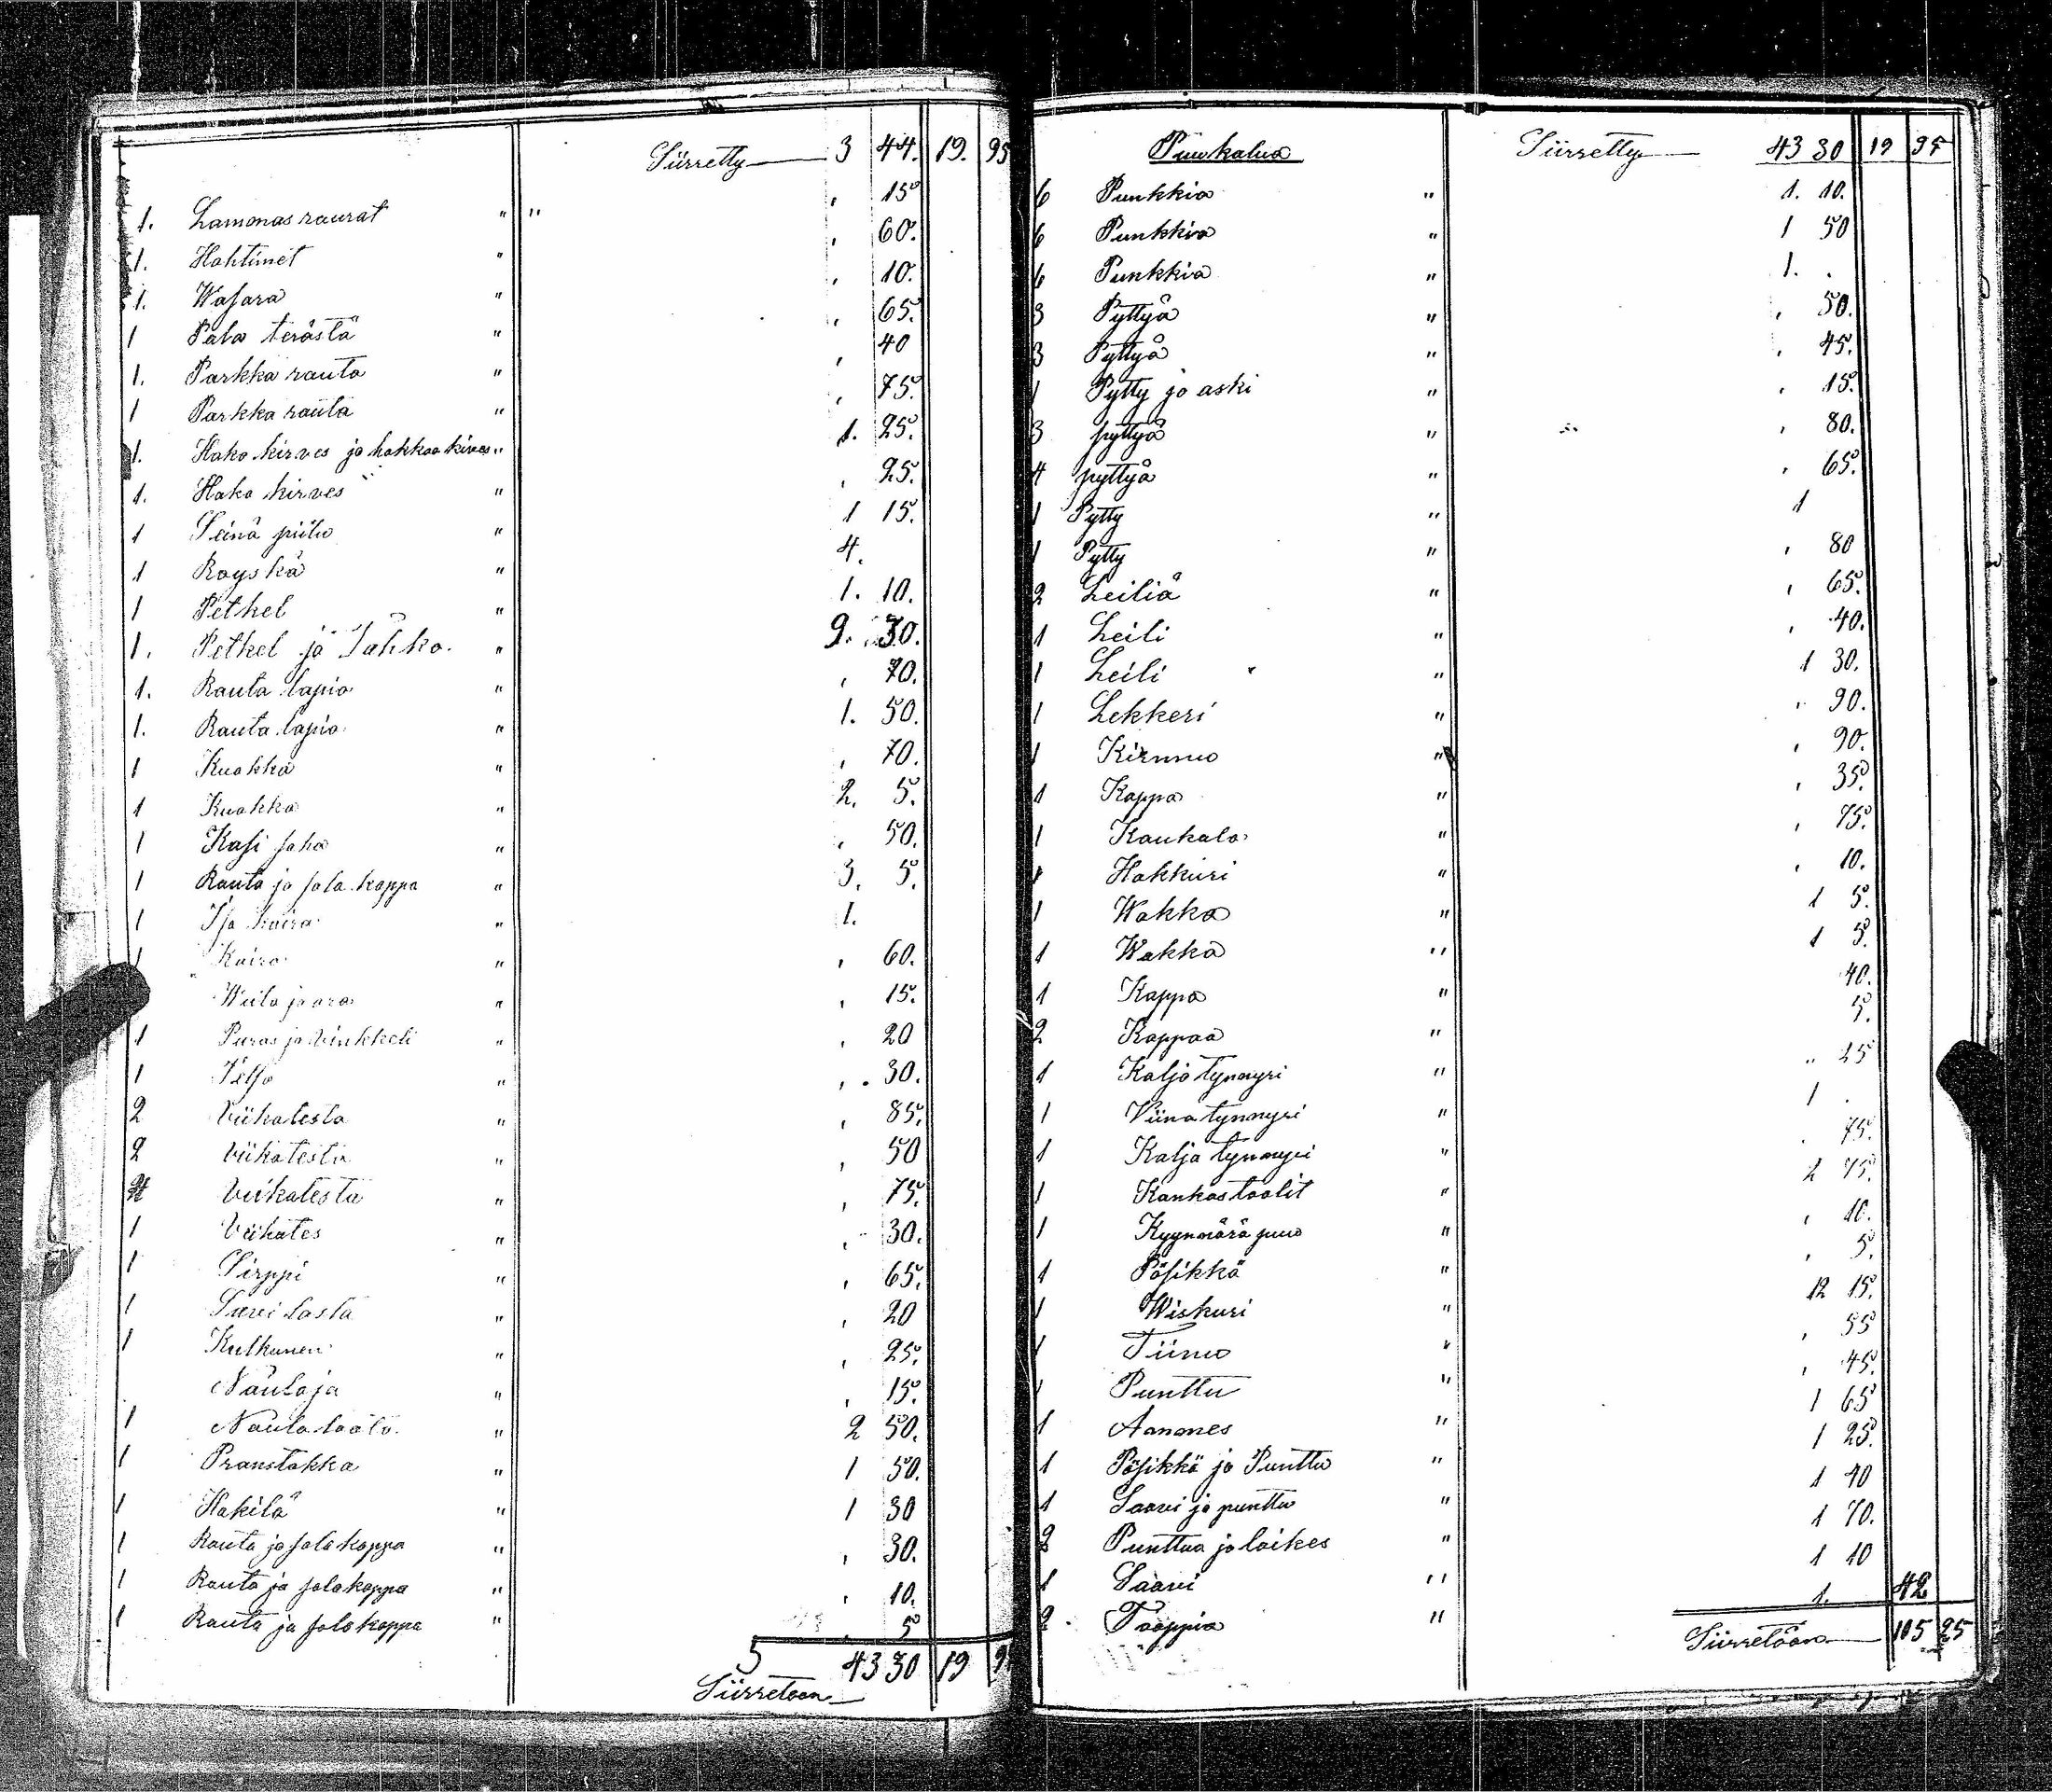 Siirretty 3 44. 19. 95
1. Lamonas raurat " " , 15
1. Hohtimet " , 60.
1. Wasara " , 10.
1 Pala terästä " , 65.
1. Parkka rauta " , 40
1 Parkka rauta " , 75.
1. Hako kirves ja hakkaa kirves " 1. 25.
1. Hako kirves " , 25.
1 Seinä piilu " 1 15.
1 Röyskä " 4.
1 Petkel " 1. 10.
1. Petkel ja Tahko. " 9. 30.
1. Rauta lapio " , 70.
1. Rauta lapio " 1. 50.
1 Kuokka " , 70.
1 Kuokka " 2. 5.
1 Käsi saha " , 50.
1 Rauta ja sala koppa " 3. 5.
1 Iso kaira " 1.
1 Kaira " , 60.
Wiila ja ora " , 15.
1 Puras ja vinkkeli " , 20
1 Telso " , . 30.
2 Viikatesta " , 85.
2 Viikatesta " , 50
Viikatesta " , 75.
1 Viikates " , 30.
1 Sirppi " , 65.
1 Savi lasta " , 20
1 Kulkunen " , 25.
Nauloja " , 15.
1 Naula laato. " 2 50.
1 Pranstakka " 1 50.
1 Häkilä " 1 30
1 Rauta ja sala koppa " , 30.
1 Rauta ja sala koppa " , 10.
1 Rauta ja sala koppa " , 5
5 43 30 19 9
Siirretään
Puukalua Siirretty 43 30 19 95
6 Punkkia " 1. 10.
6 Punkkia " 1 50
6 Punkkia " 1. .
3 Pyttyä " , 50.
3 Pyttyä " , 45.
1 Pytty ja aski " , 15.
3 pyttyä " , 80.
4 pyttyä " , 65.
1 Pytty " 1
1 Pytty " , 80
2 Leiliä " , 65.
1 Leili " , 40.
1 Leili " 1 30.
1 Lekkeri " , 90.
1 Kirnuu " , 90.
1 Kappa " , 35.
1 Kaukalo " , 75.
1 Hakkuri " , 10.
1 Wakka " 1 5.
1 Wakka " 1 5.
1 Kappa " 40.
2 Kappaa " 5.
1 Kalja tynnyri " , 25
1 Viina tynnyri " 1 .
1 Kalja tynnyri " . 75.
1 Kankas toolit " 2 75.
1 Kyynärä puu " , 10.
1 Pösikkä " , 5.
1 Wiskuri " 12 15.
1 Tiinu " , 55
1 Punttu " , 45.
1 Aanones " 1 65
1 Pösikkä ja Punttu " 1 25.
1 Saavi ja punttu " 1 40
2 Punttua ja laikes " 1 70.
1 Saavi " 1 10
2 Tooppia " 1. 42
Siirretään 105 25